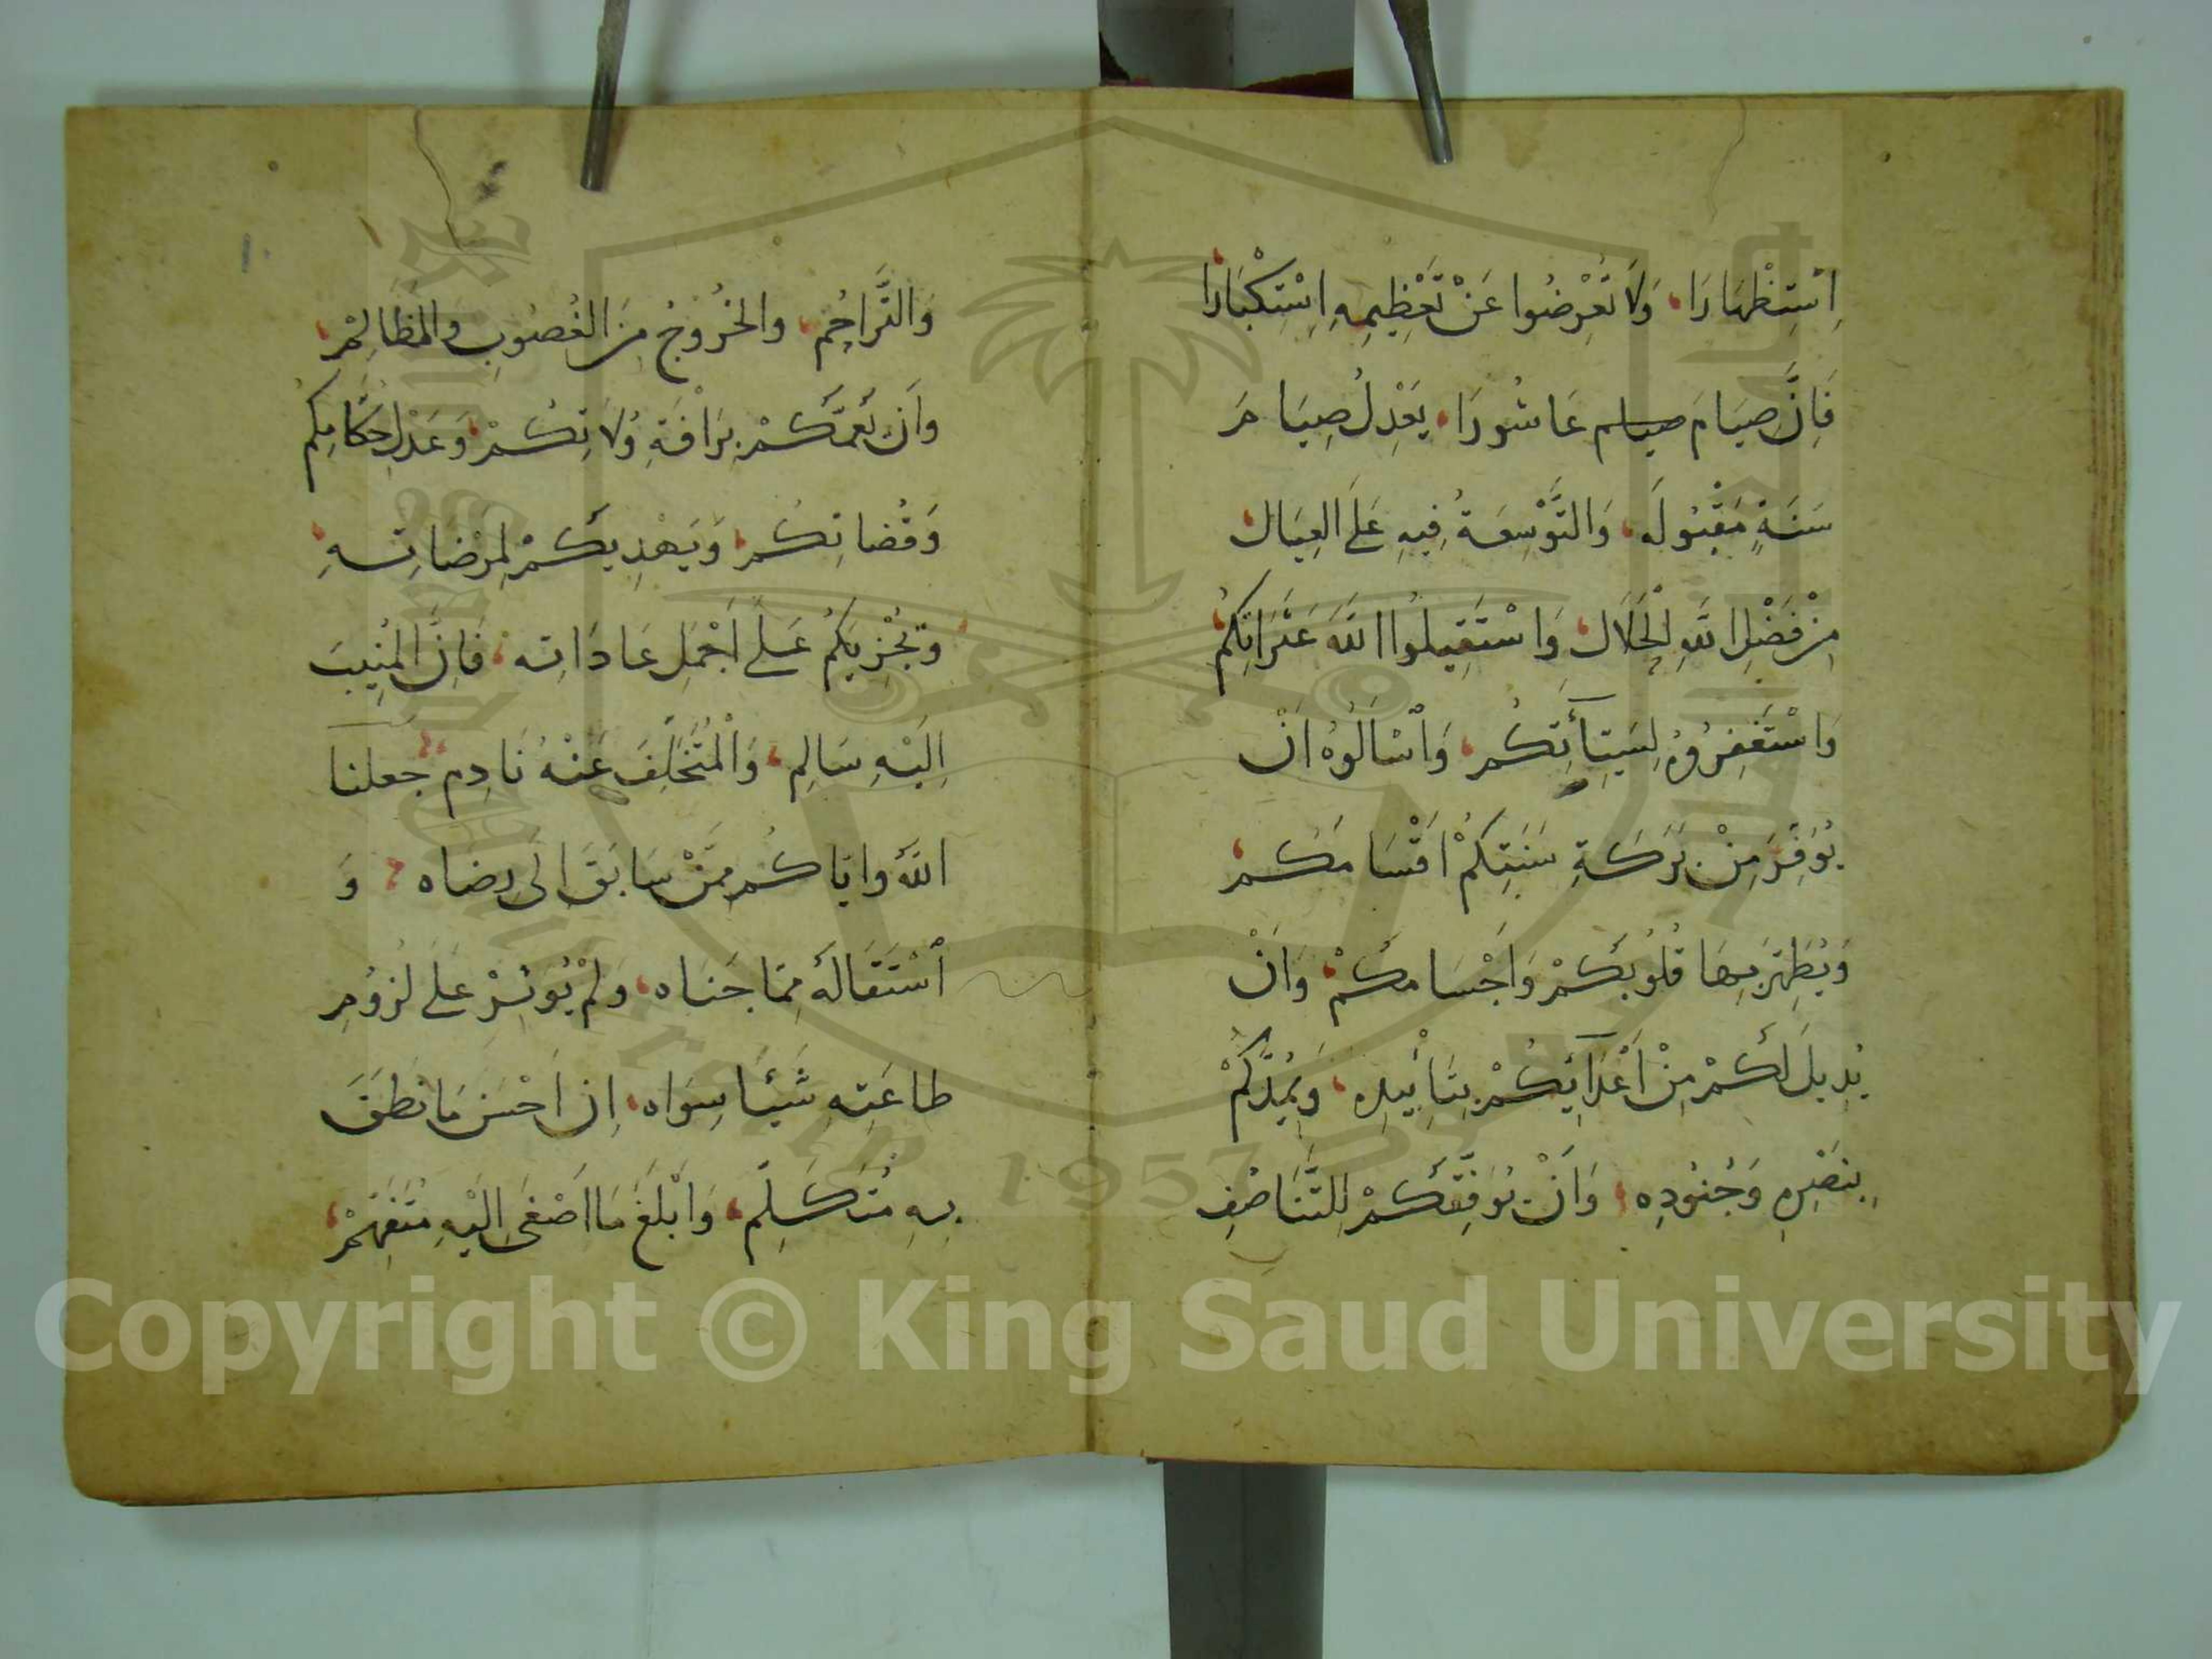 اِسْتِظْهَارَا، وَلَا تُعْرِضُوا عَنْ تَعْظِيمِهِ اِسْتِكْبَارَا،
فَاِنَّ صِيَامَ صيام عَاشُورَا، يَعْدِلُ صِيَامَ
سَنَةٍ مَقْبُولَه، وَالتَّوْسِعَةُ فِيهِ عَلَى العِيَال،
مِنْ فَضْلِ اللَّهِ الْحَلَال، وَاسْتَقِيلُوا اللَّهَ عَثَرَاتِكُم،
وَاسْتَغْفِرُوهُ لِسَيِّئَاتِكُم، وَاسْأَلُوهُ اَنْ
يُوَفِّرَ مِنْ بَرَكَةِ سَنَتِكُمْ اَقْسَامَكُم،
وَيُطَهِّرَ بِهَا قُلُوبَكُمْ وَاَجْسَامَكُمْ، وَاَنْ
يُدِيلَ لَكُمْ مِنْ اَعْدَائِكُمْ بِتَأْيِيدِه، وَيُمِدَّكُمْ
بِنَصْرِهِ وَجُنُودِه، وَاَنْ يُوَفِّقَكُمْ لِلتَّنَاصُفِ
١٠
وَالتَّرَاحُم، والخُرُوجِ مِنَ الغُصُوبِ وَالمَظَالِمْ،
وَاَن يَعُمَّكُمْ بِرَافَةِ وُلَاتِكُمْ، وَعَدْلِ حُكَّامِكُمْ
وَقُضَاتِكُم، وَيَهْدِيَكُمْ لِمَرْضَاتِهِ،
وَيُجْزِيَكُمْ عَلَى اَجْمَلِ عَادَاتِه، فَاِنَّ المُنِيبَ
اِلَيْهِ سَالِم، وَالْمُتَخَلِّفَ عَنْهُ نَادِم، جعلنا
اللَّهُ واياكُم مِمَّنْ سَابَقَ اِلَى رِضاه، وَ
اسْتَقَالَهُ مِمَّا جَنَاه، وَلَمْ يُوثِرْ عَلَى لُزُومِ
طاعَتِهِ شَيْئًا سِوَاه، اِنَّ اَحْسَنَ مَا نَطَقَ
بِهِ مُتَكَلِّم، وَاَبْلَغَ مَا اَصْغَى اِلَيْهِ مُتَفَهِّمْ،
Copyright © King Saud University
1957